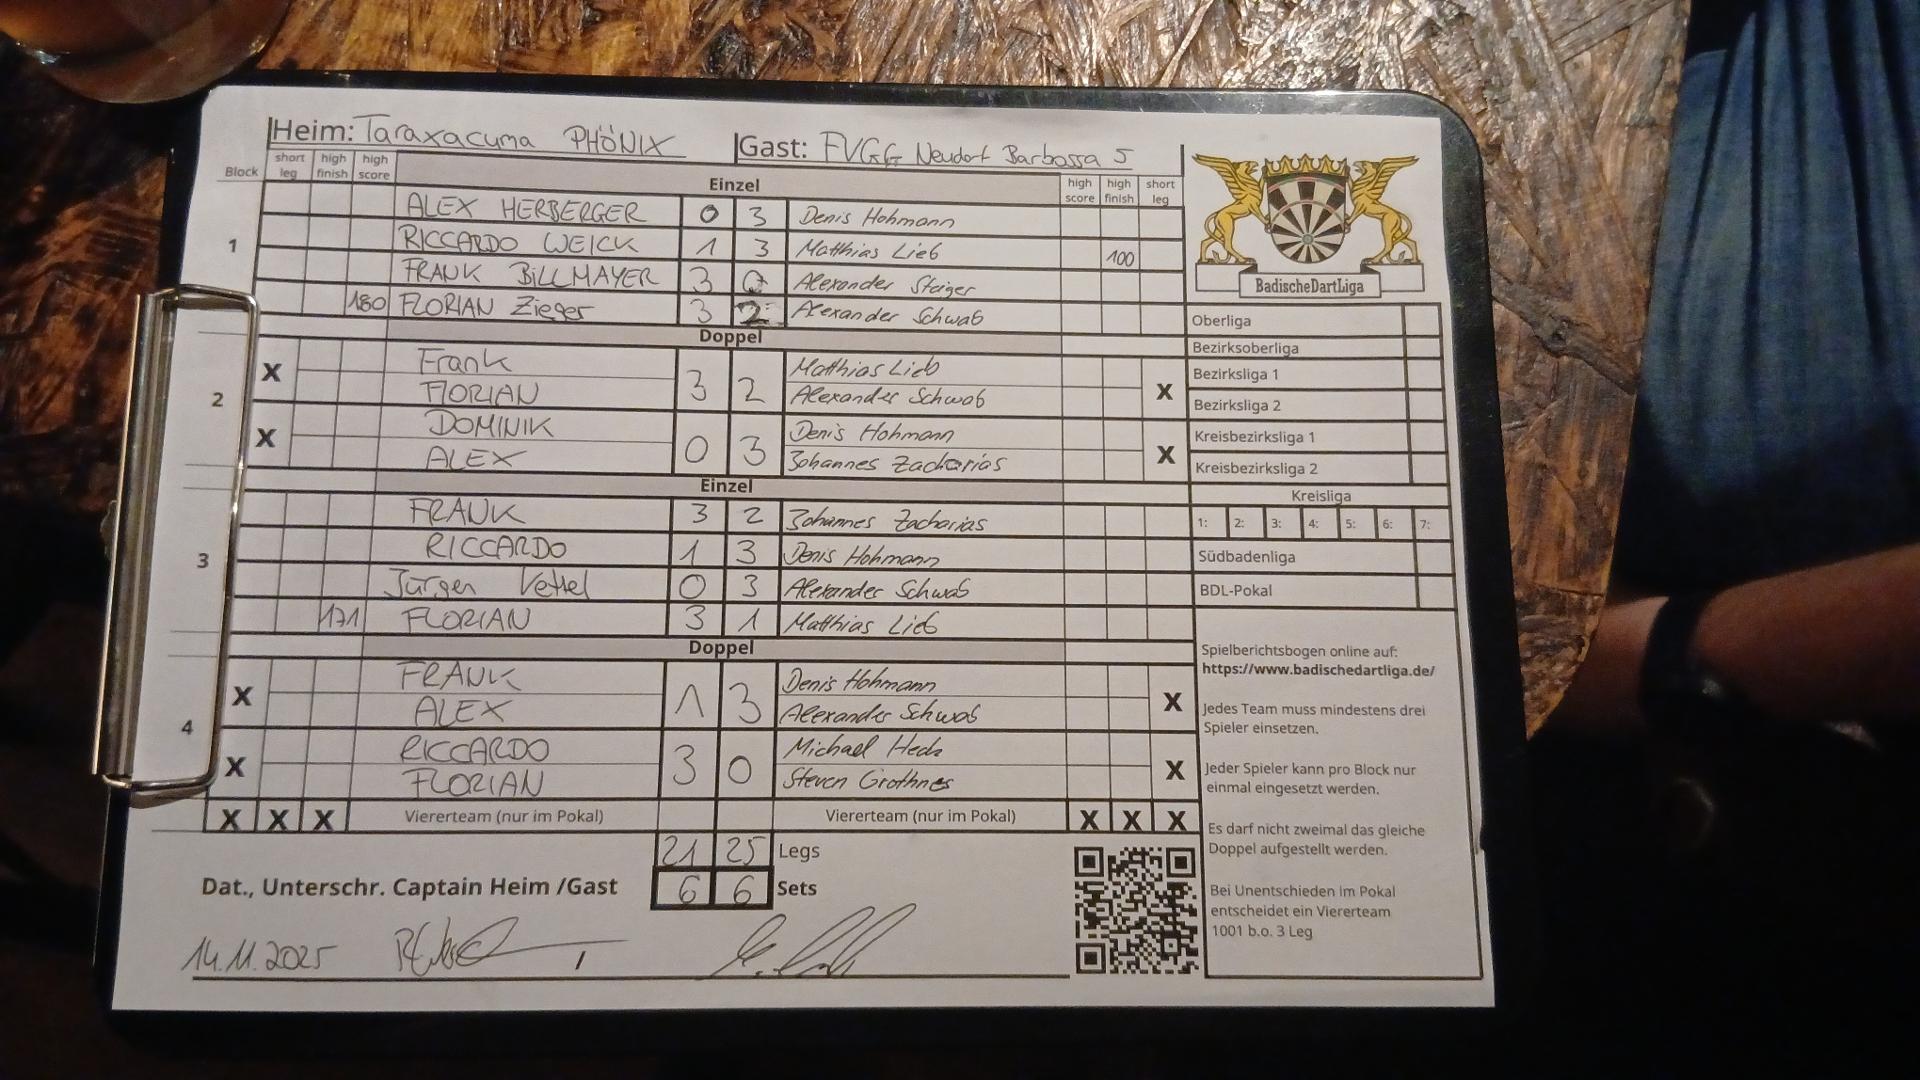 Heim: Taraxacuma PHÖNIX Gast: FVGG Neudorf Barbossa 5
Block short leg high finish high score Einzel high score high finish short leg
ALEX HERBERGER 0 3 Denis Hohmann
1 RICCARDO WEICK 1 3 Matthias Lieb 100
FRANK BILLMAYER 3 0 Alexander Steiger
180 FLORIAN Zieger 3 2 Alexander Schwab
Doppel
2
X Frank 3 2 Matthias Lieb X
FLORIAN Alexander Schwab
X DOMINIK 0 3 Denis Hohmann X
ALEX Johannes Zacharias
Einzel
3
FRANK 3 2 Johannes Zacharias
RICCARDO 1 3 Denis Hohmann
Jürgen Vettel 0 3 Alexander Schwab
171 FLORIAN 3 1 Matthias Lieb
Doppel
4
X FRANK 1 3 Denis Hohmann X
ALEX Alexander Schwab
X RICCARDO 3 0 Michael Heck X
FLORIAN Steven Grothnes
X X X Viererteam (nur im Pokal) Viererteam (nur im Pokal) X X X
21 25 Legs
Dat., Unterschr. Captain Heim /Gast 6 6 Sets
14.11.2025
BadischeDartLiga
Oberliga
Bezirksoberliga
Bezirksliga 1
Bezirksliga 2
Kreisbezirksliga 1
Kreisbezirksliga 2
Kreisliga
1: 2: 3: 4: 5: 6: 7:
Südbadenliga
BDL-Pokal
Spielberichtsbogen online auf:
https://www.badischedartliga.de/
Jedes Team muss mindestens drei
Spieler einsetzen.
Jeder Spieler kann pro Block nur
einmal eingesetzt werden.
Es darf nicht zweimal das gleiche
Doppel aufgestellt werden.
Bei Unentschieden im Pokal
entscheidet ein Viererteam
1001 b.o. 3 Leg